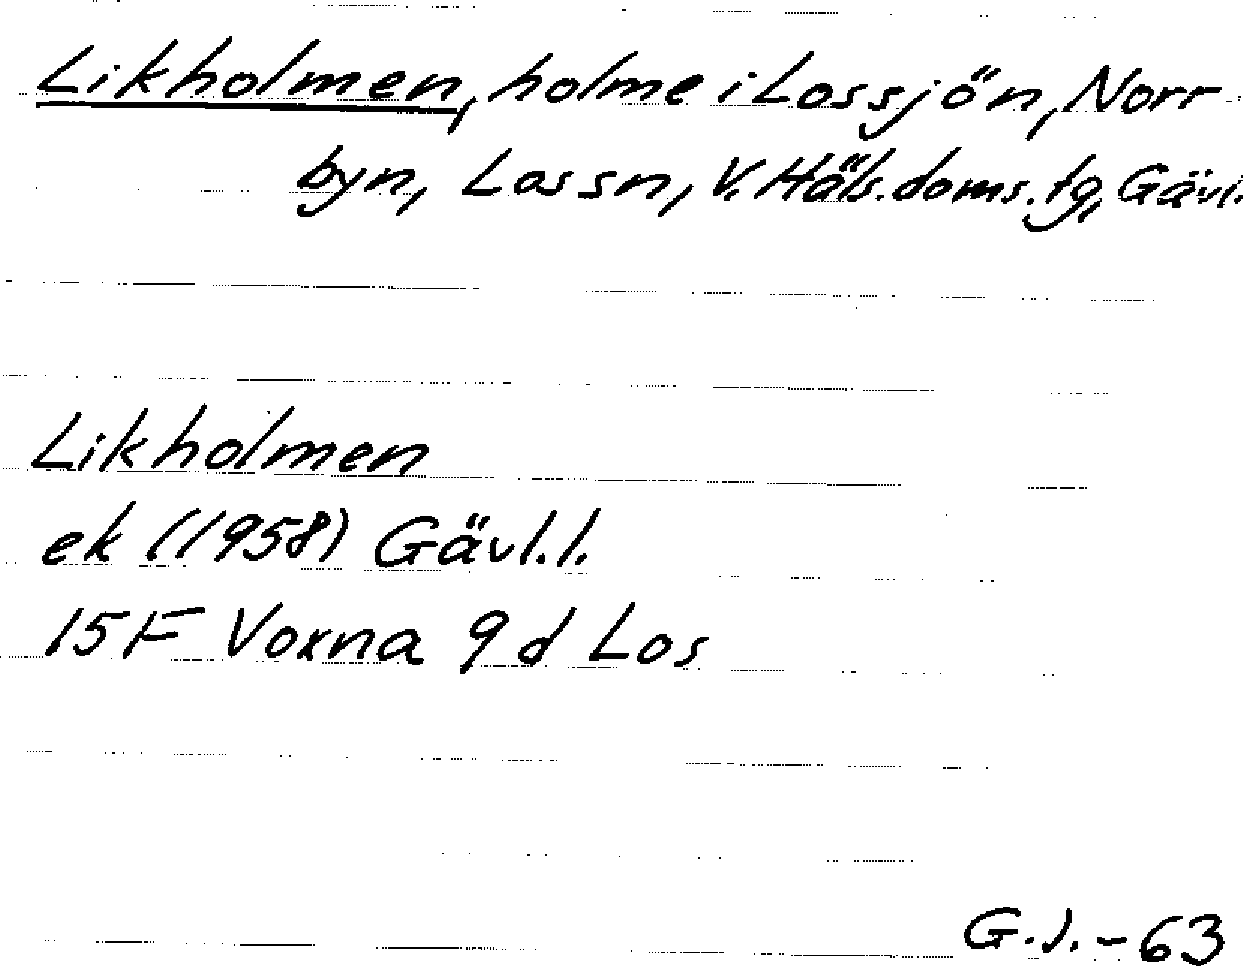 Likholmen, holme i Lossjön, Norr-
byn, Los sn, V. Häls. doms. tg, Gävl.
Likholmen
ek (1958) Gävl. l.
15F Voxna 9d Los
G.J. - 63